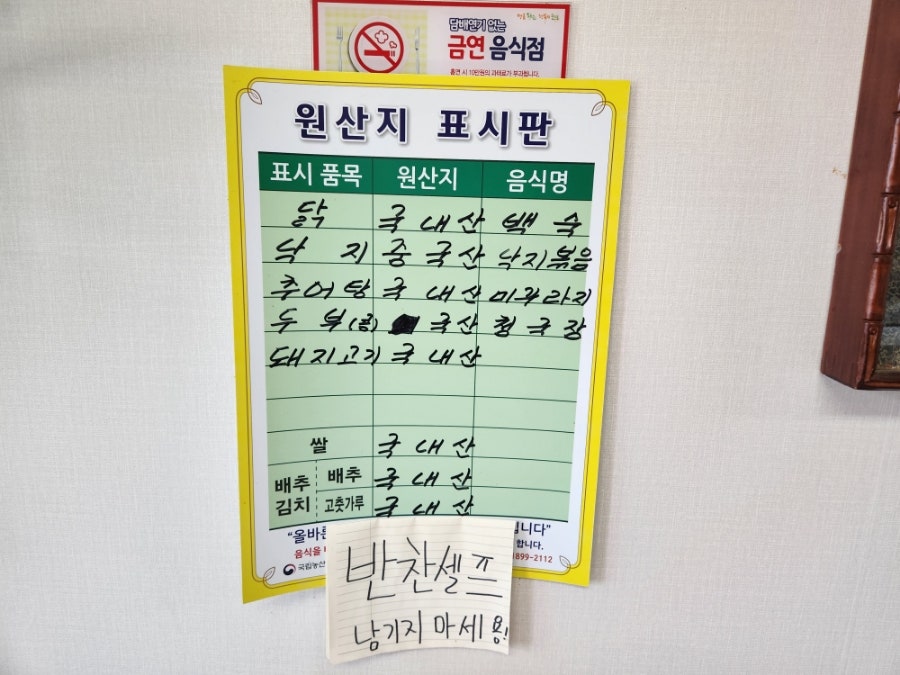 담배연기 없는
금연 음식점
흡연 시 10만원의 과태료가 부과됩니다.
원산지 표시판
표시 품목 원산지 음식명
닭 국내산 백숙
낙지 중국산 낙지볶음
추어탕 국내산 미꾸라지
두부(콩) 국산 청국장
돼지고기 국내산
쌀 국내산
배추김치 배추 국내산
고춧가루 국내산
"올바른 입니다"
음식을 합니다.
국립농산 1899-2112
반찬셀프
남기지 마세용!